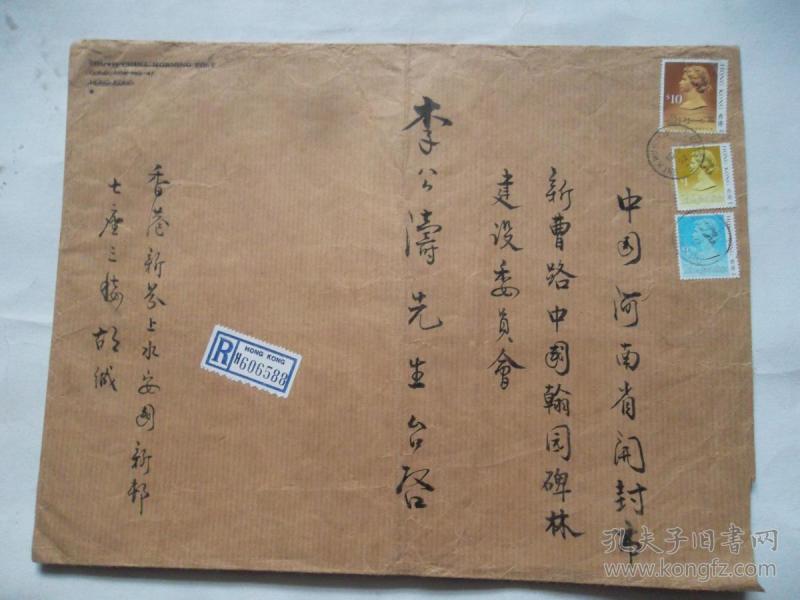 中国河南省開封市
新曹路中國翰园碑林
建设委員會
李公濤先生台啓
香港新界上水安國新邨
七座三樓胡誠
HONG KONG
R
H606588
HONG KONG 香港
$10
HONG KONG
孔夫子旧书网
www.kongfz.com